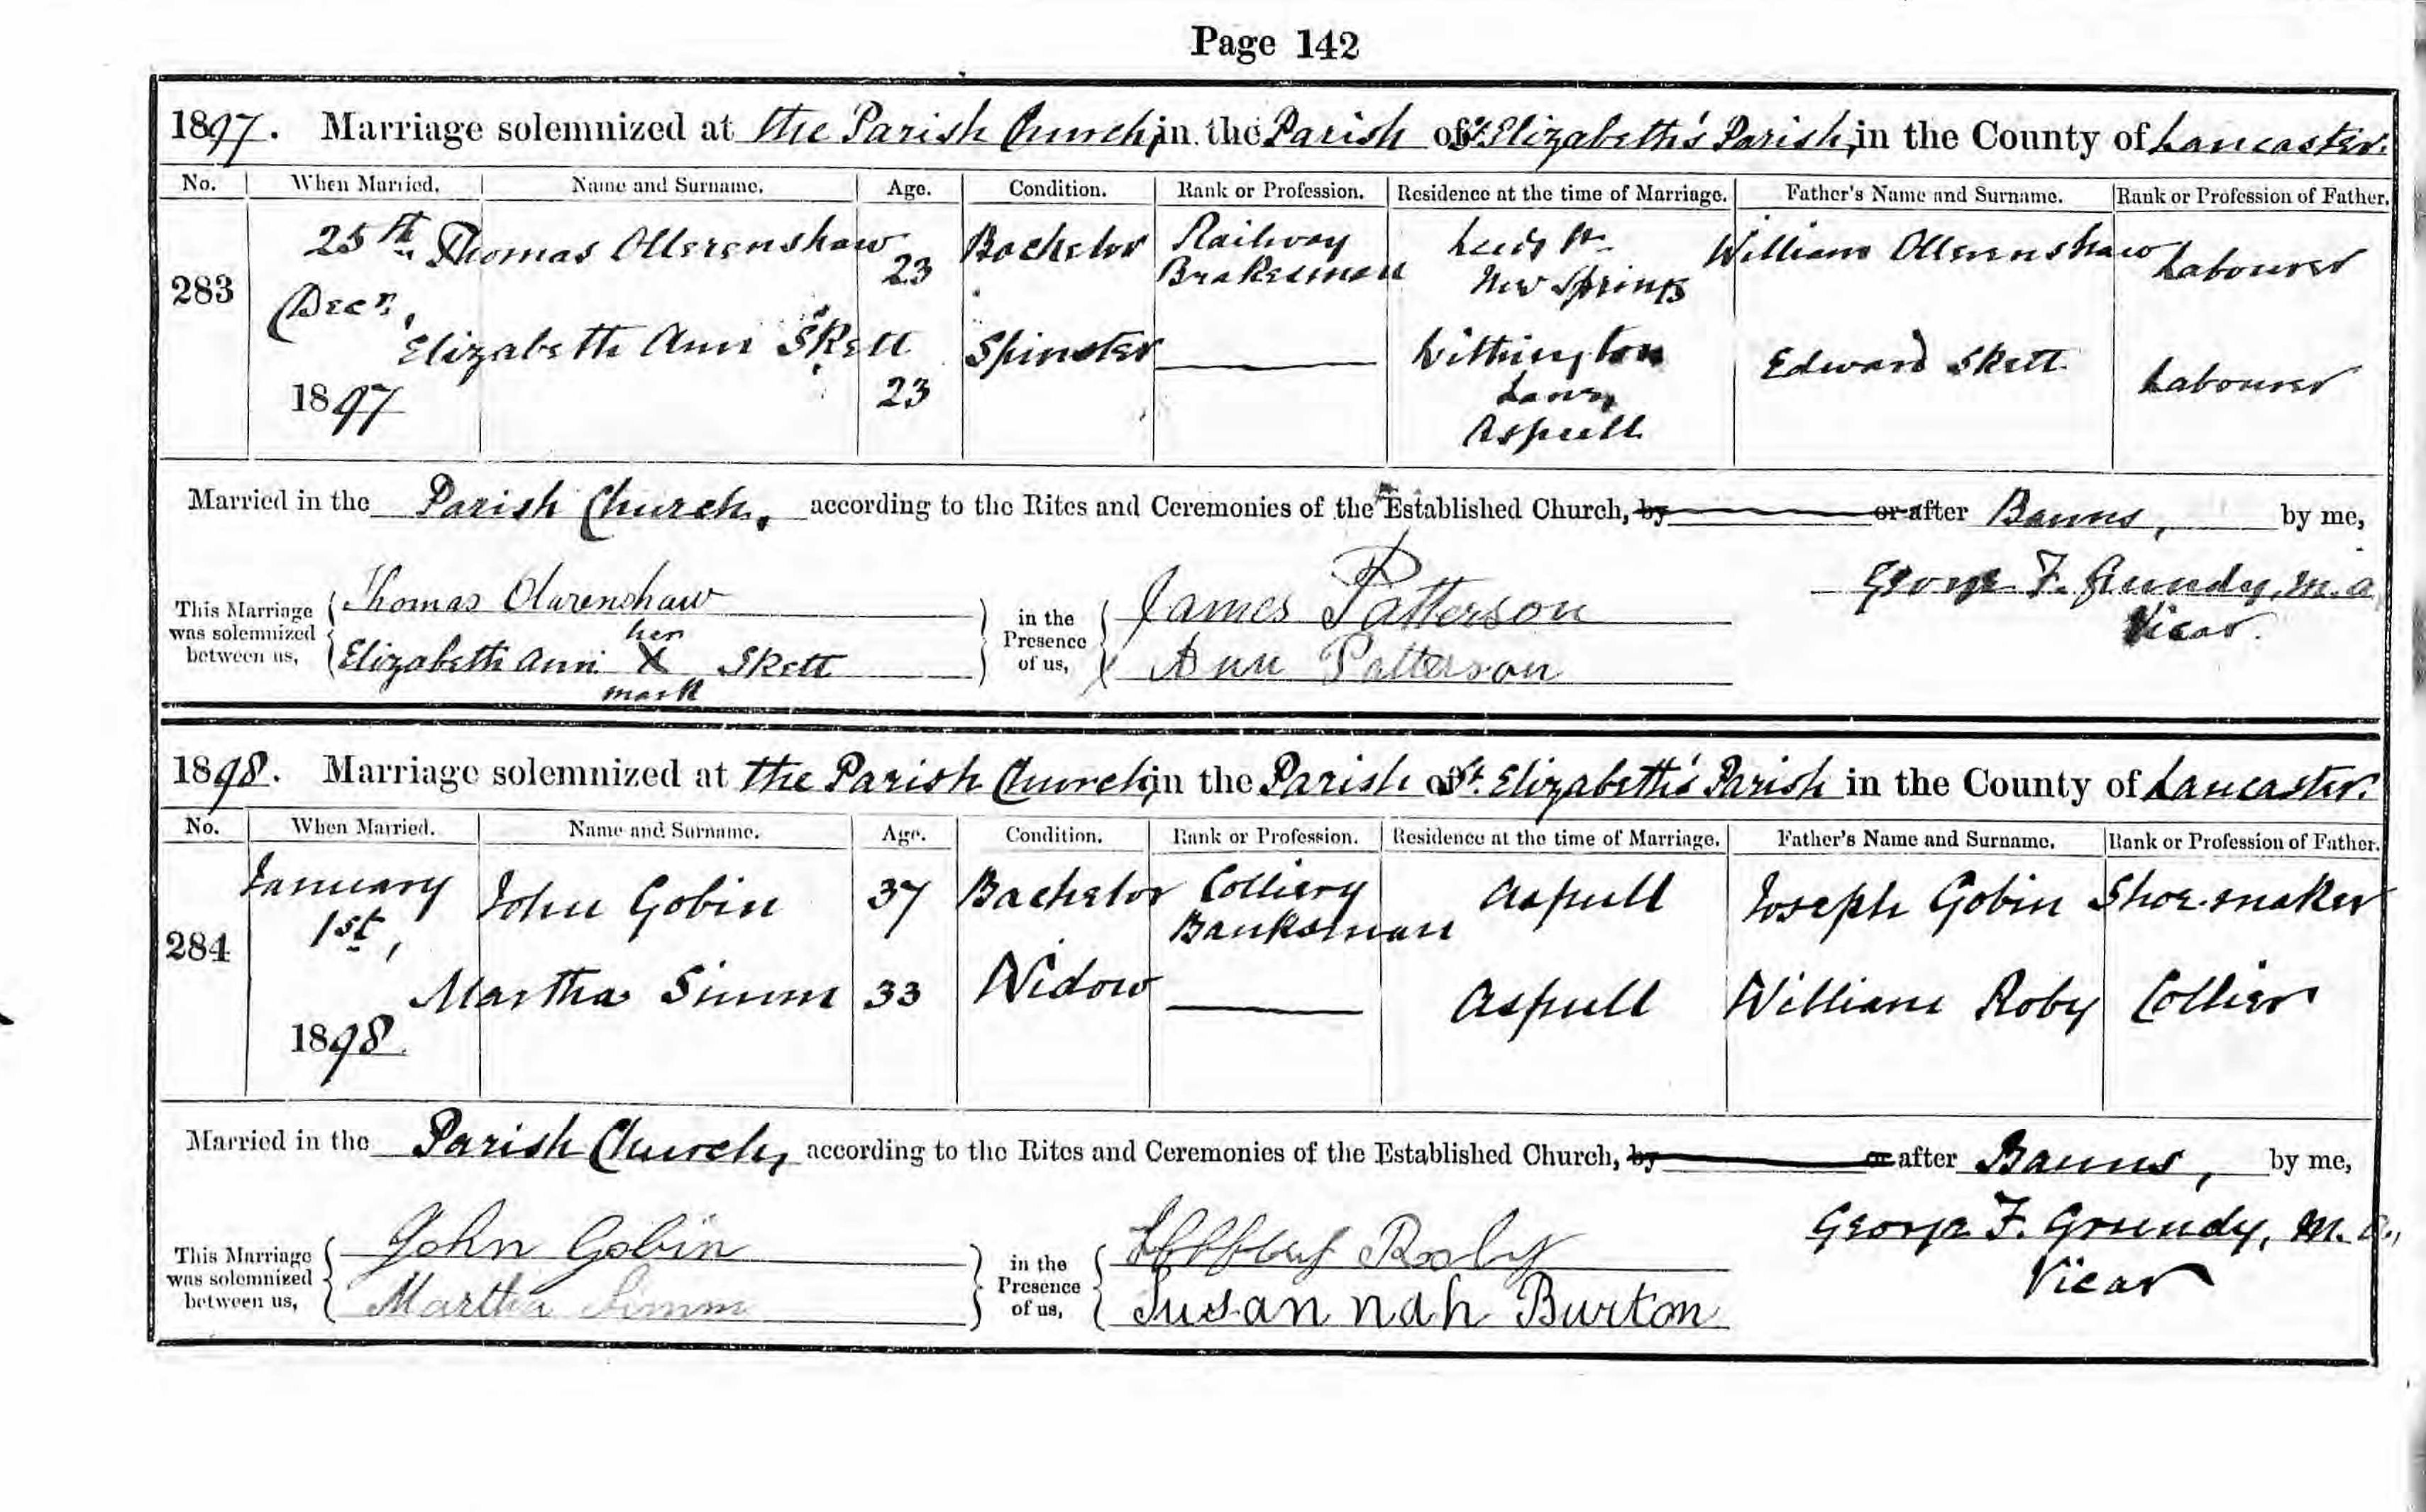 Page 142
1897. Marriage solemnized at the Parish Church, in the Parish of St. Elizabeth's Parish, in the County of Lancaster.
No. When Married. Name and Surname. Age. Condition. Rank or Profession. Residence at the time of Marriage. Father's Name and Surname. Rank or Profession of Father.
283 25th Decr, 1897 Thomas Ollerenshaw 23 Bachelor Railway Brakesman Leeds St. New Springs William Ollerenshaw Labourer
Elizabeth Ann Skett 23 Spinster Withington Lane, Aspull Edward Skett Labourer
Married in the Parish Church, according to the Rites and Ceremonies of the Established Church, by or after Banns, by me,
This Marriage was solemnized between us, Thomas Olurenshaw in the Presence of us, James Patterson George F. Grundy, M.A.
Elizabeth Ann X Skett her mark Ann Patterson Vicar.
1898. Marriage solemnized at the Parish Church, in the Parish of St. Elizabeth's Parish in the County of Lancaster.
No. When Married. Name and Surname. Age. Condition. Rank or Profession. Residence at the time of Marriage. Father's Name and Surname. Rank or Profession of Father.
284 January 1st, 1898 John Gobin 37 Bachelor Colliery Banksman Aspull Joseph Gobin Shoe-maker
Martha Simm 33 Widow Aspull William Roby Collier
Married in the Parish Church, according to the Rites and Ceremonies of the Established Church, by or after Banns, by me,
This Marriage was solemnized between us, John Gobin in the Presence of us, Roby George F. Grundy, M.A.,
Martha Simm Susannah Burton Vicar